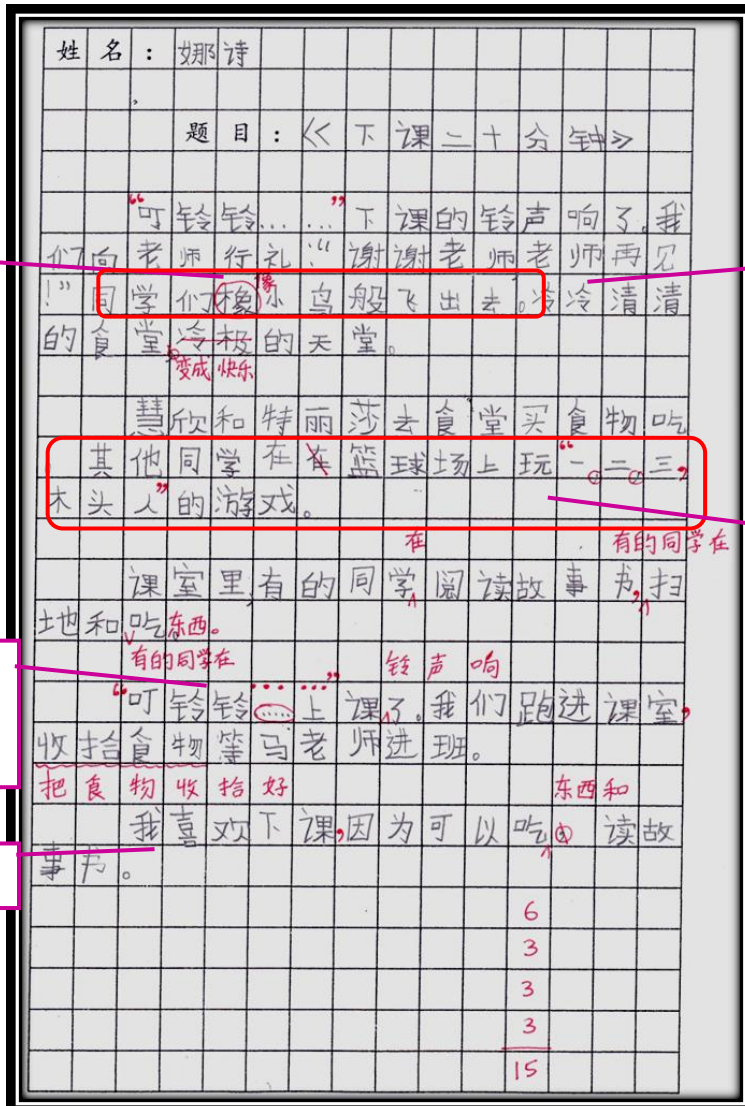 姓名：娜诗
题目：《下课二十分钟》
“叮铃铃……”下课的铃声响了。我
们向老师行礼：“谢谢老师老师再见
像
！”同学们橡小鸟般飞出去。冷冷清清
的食堂冷极的天堂。
变成快乐
慧欣和特丽莎去食堂买食物吃
其他同学在在篮球场上玩“一、二、三，
木头人”的游戏。
在 有的同学在
课室里，有的同学阅读故事书，扫
地和吃东西。
有的同学在 铃声响
“叮铃铃……”上课了。我们跑进课室，
收拾食物等马老师进班。
把食物收拾好 东西和
我喜欢下课，因为可以吃、读故
事书。
6
3
3
3
15